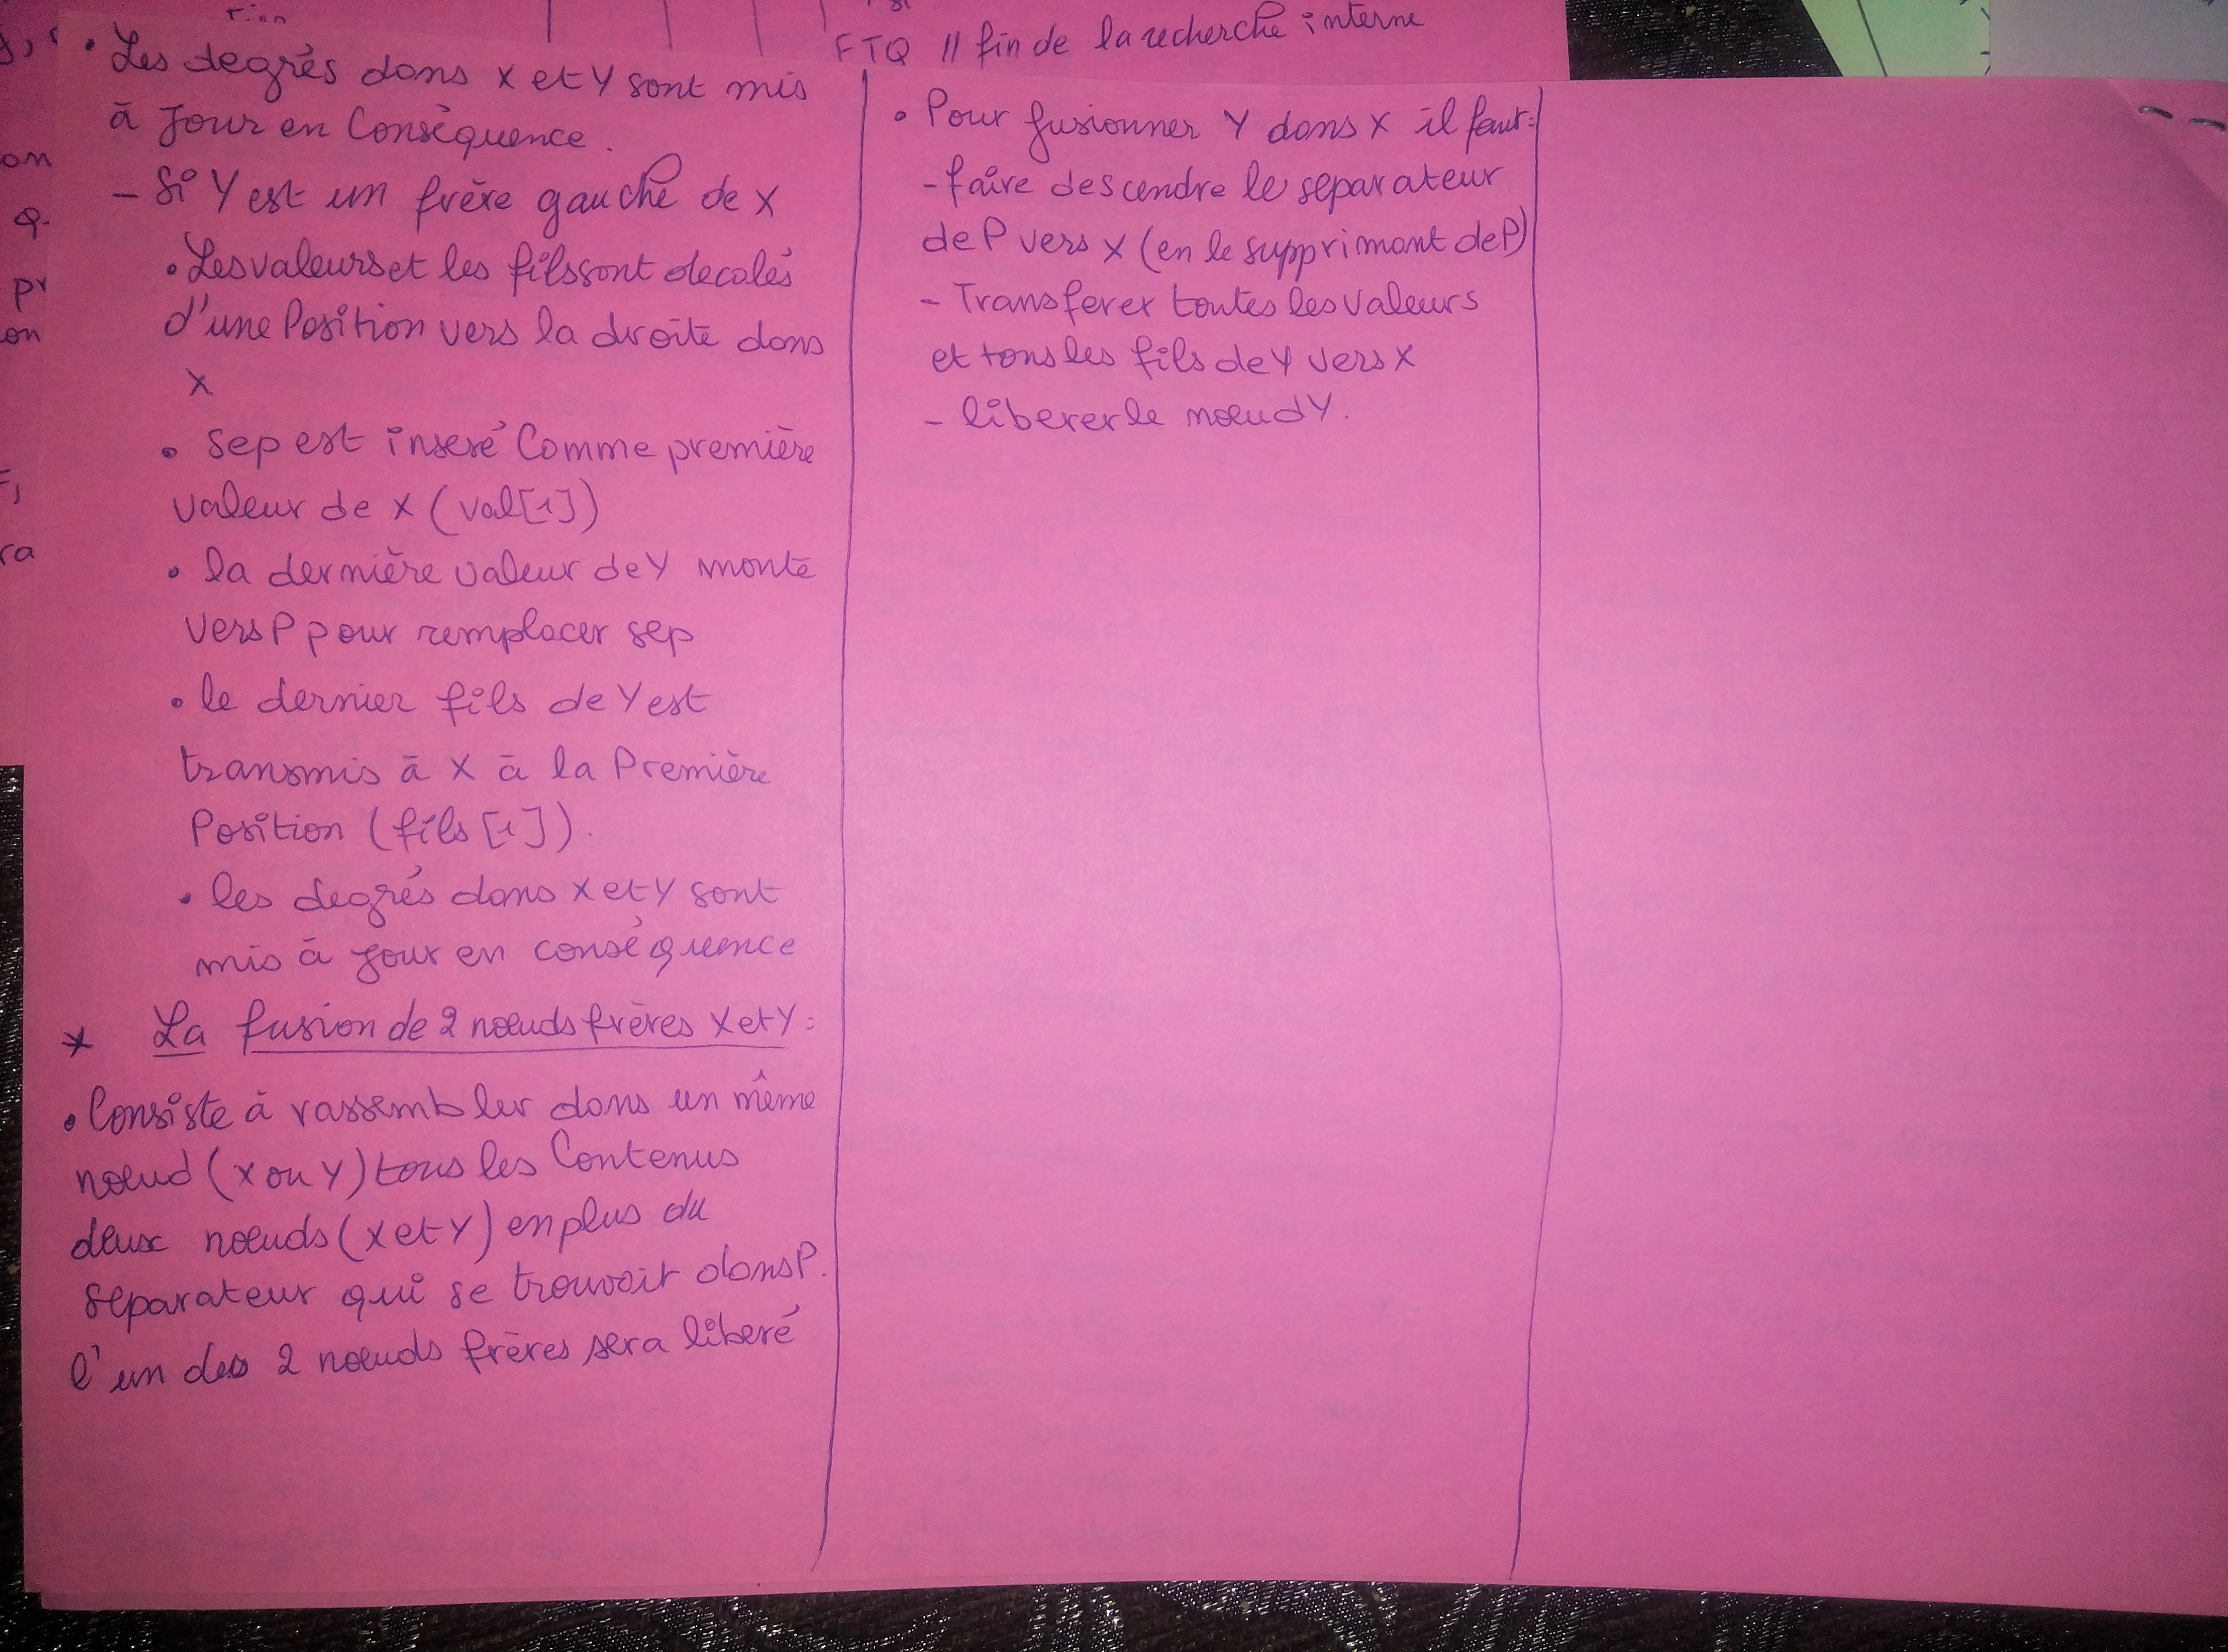 FTQ // fin de la recherche interne
• Les degrés dans X et Y sont mis
à Jour en Conséquence.
- Si Y est un frère gauche de X
• Les valeurs et les fils sont decalés
d'une Position vers la droite dans
X
• Sep est inseré Comme première
valeur de X (val[1])
• la dernière valeur de Y monte
vers P pour remplacer sep
• le dernier fils de Y est
transmis à X à la Première
Position (fils [1]).
• les degrés dans X et Y sont
mis à jour en conséquence
* La fusion de 2 nœuds frères X et Y :
• Consiste à rassembler dans un même
nœud (X ou Y) tous les Contenus
deux nœuds (X et Y) en plus du
séparateur qui se trouvait dans P.
l'un des 2 nœuds frères sera liberé
• Pour fusionner Y dans X il faut :
- faire descendre le separateur
de P vers X (en le supprimant de P)
- Transferer toutes les valeurs
et tous les fils de Y vers X
- liberer le nœud Y.